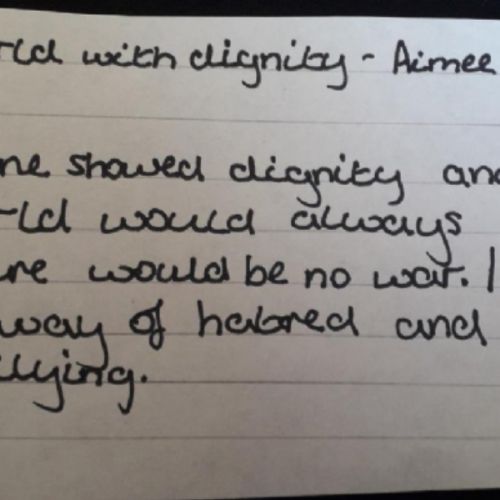 rld with dignity - Aimee
ne showed dignity and
rld would always
re would be no war. I
way of hatred and
llying.